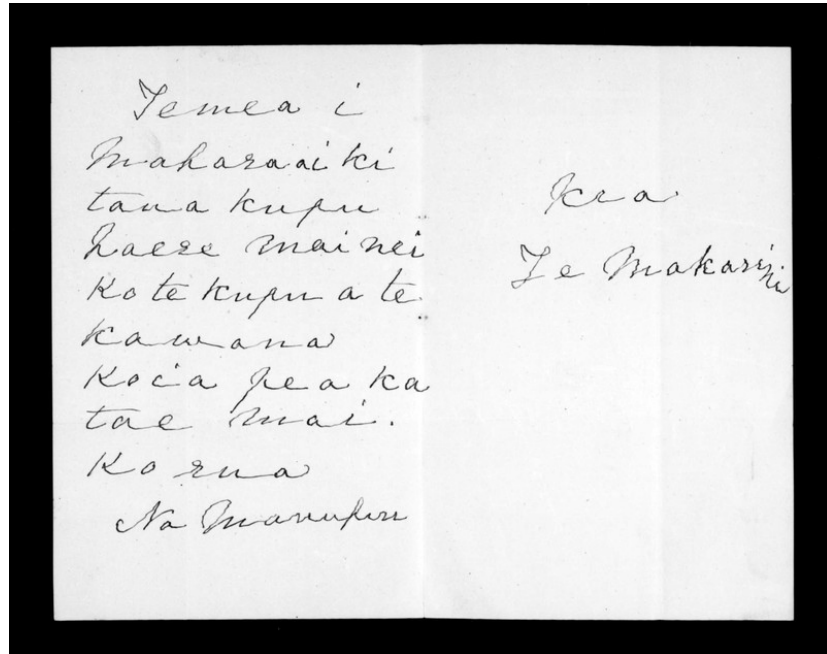 Temea i
Maharaai ki
tana kupu
haere mai nei
Ko te kupu a te
kawana
Koia pea ka
tae mai.
Ko rua
Na Manupiri
Kia
Te Makarini